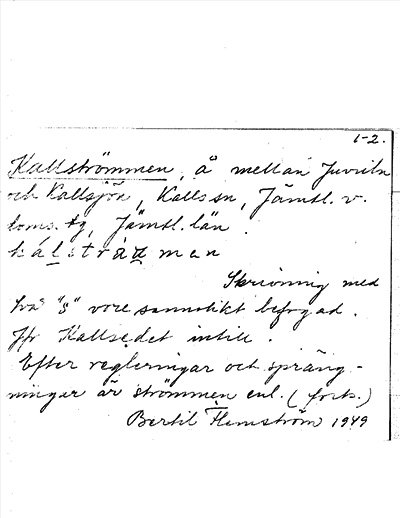 1-2.
Kallströmmen, å mellan Juveln
och Kallsjön, Kalls sn, Jämtl. v.
doms. tg, Jämtl. län.
kálstråmen
Skrivning med
två "s" vore sannolikt befogad.
Jfr Kallsedet intill.
Efter regleringar och spräng-
ningar är strömmen enl. (forts.)
Bertil Flemström 1949